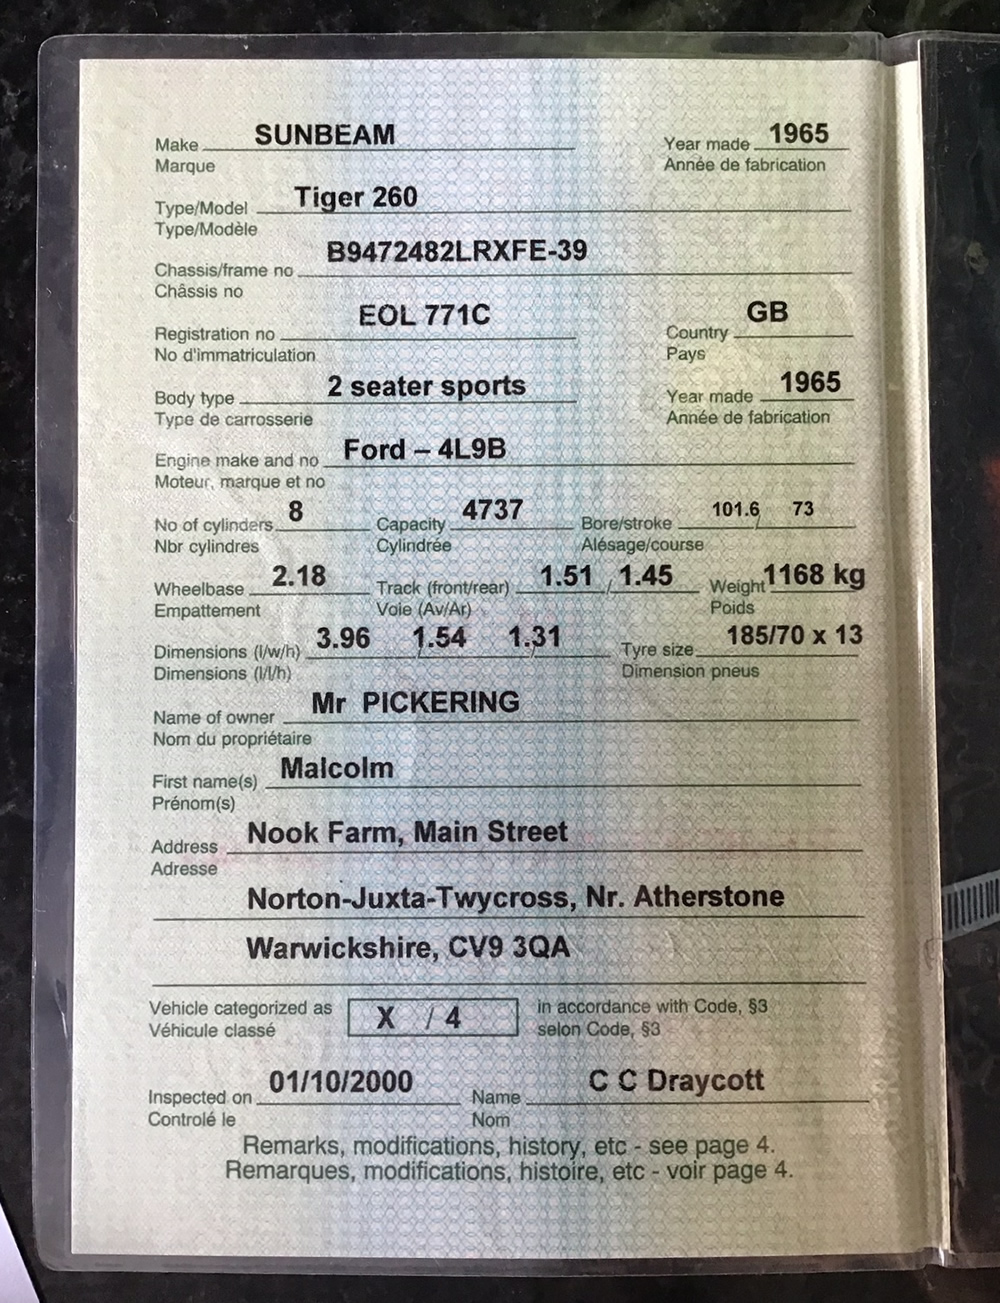 Make SUNBEAM Year made 1965
Marque Année de fabrication
Type/Model Tiger 260
Type/Modèle
Chassis/frame no B9472482LRXFE-39
Châssis no
Registration no EOL 771C Country GB
No d'immatriculation Pays
Body type 2 seater sports Year made 1965
Type de carrosserie Année de fabrication
Engine make and no Ford – 4L9B
Moteur, marque et no
No of cylinders 8 Capacity 4737 Bore/stroke 101.6 / 73
Nbr cylindres Cylindrée Alésage/course
Wheelbase 2.18 Track (front/rear) 1.51 / 1.45 Weight 1168 kg
Empattement Voie (Av/Ar) Poids
Dimensions (l/w/h) 3.96 / 1.54 / 1.31 Tyre size 185/70 x 13
Dimensions (l/l/h) Dimension pneus
Name of owner Mr PICKERING
Nom du propriétaire
First name(s) Malcolm
Prénom(s)
Address Nook Farm, Main Street
Adresse
Norton-Juxta-Twycross, Nr. Atherstone
Warwickshire, CV9 3QA
Vehicle categorized as X / 4 in accordance with Code, §3
Véhicule classé selon Code, §3
Inspected on 01/10/2000 Name C C Draycott
Controlé le Nom
Remarks, modifications, history, etc - see page 4.
Remarques, modifications, histoire, etc - voir page 4.